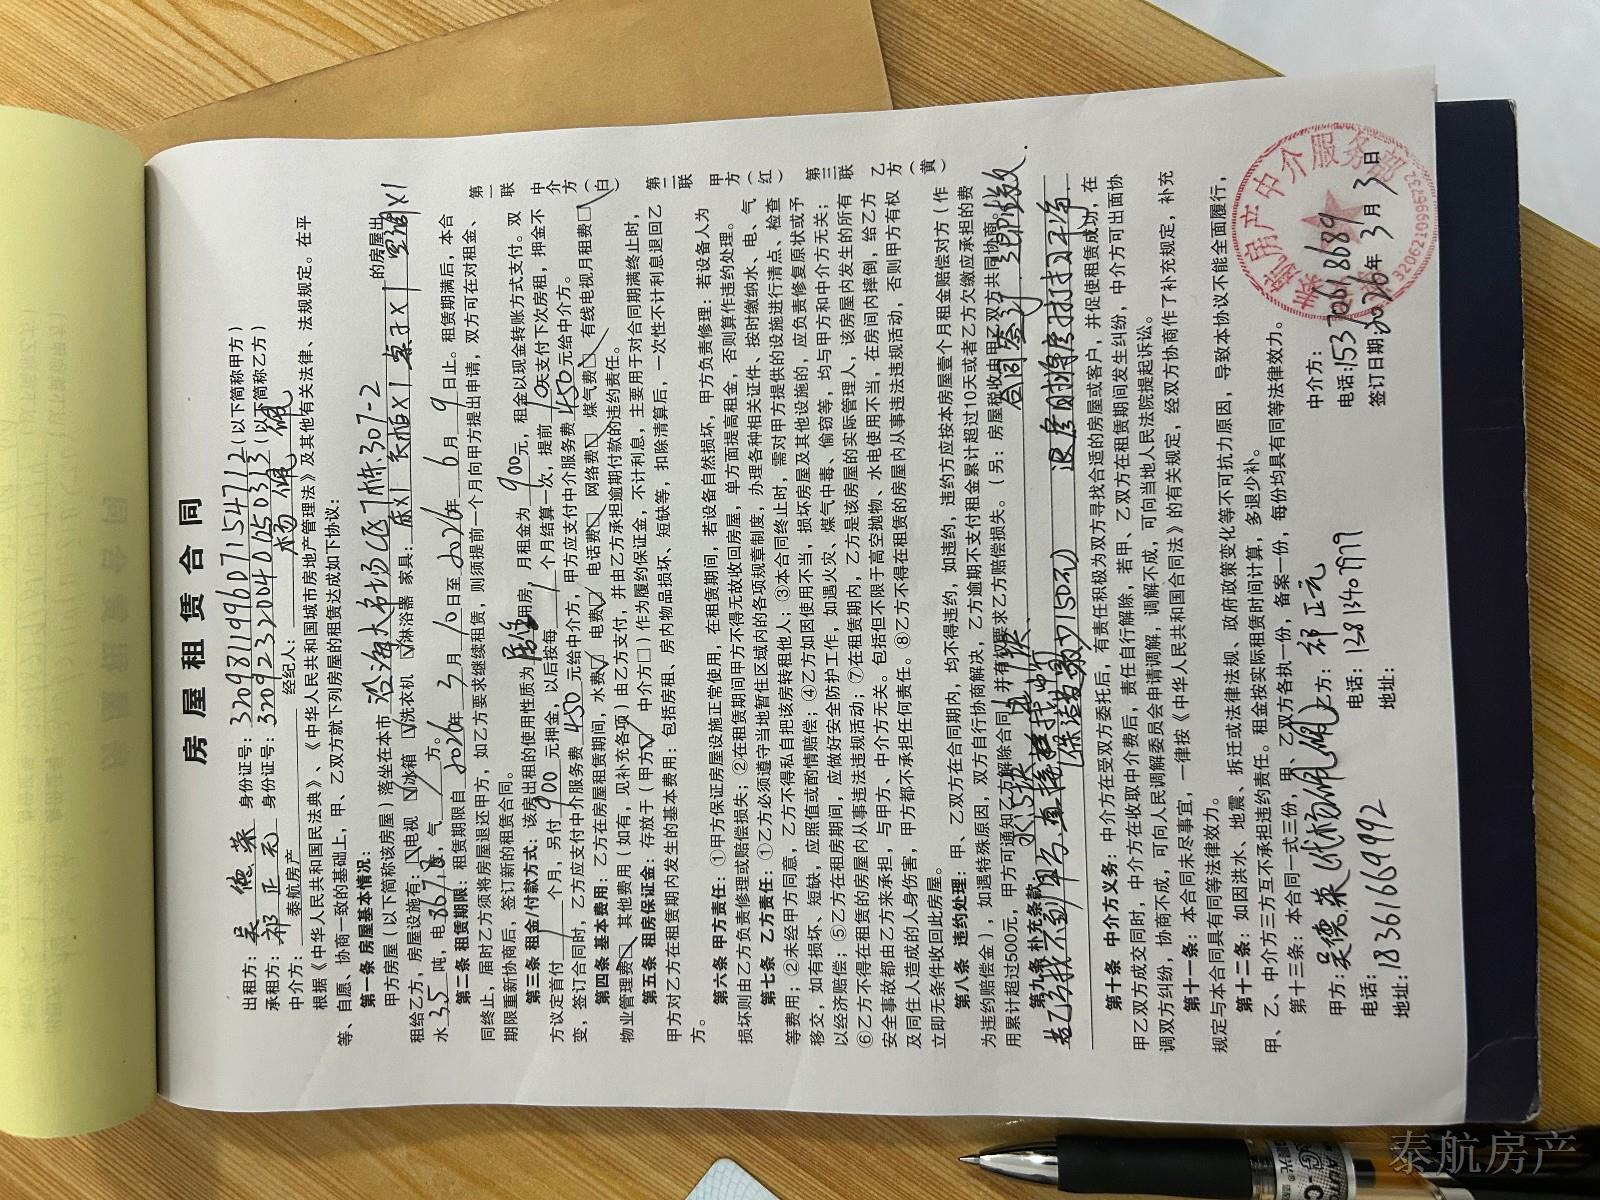 房屋租赁合同
出租方：吴德荣 身份证号：320981199607154712（以下简称甲方）
承租方：祁正元 身份证号：320923200401050313（以下简称乙方）
中介方：泰航房产 经纪人：杨佩佩
根据《中华人民共和国民法典》、《中华人民共和国城市房地产管理法》及其他有关法律、法规规定。在平
等、自愿、协商一致的基础上，甲、乙双方就下列房屋的租赁达成如下协议：
第一条 房屋基本情况：
甲方房屋（以下简称该房屋）落坐在本市 沿海大市场C区7栋307-2 的房屋出
租给乙方，房屋设施有：□电视 冰箱 洗衣机 淋浴器 家具：床X1 衣柜X1 桌子X1 空调X1
水35吨，电867.度，气/方。
第二条 租赁期限：租赁期限自2026年3月10日至2026年6月9日止。租赁期满后，本合
同终止，届时乙方须将房屋退还甲方，如乙方要求继续租赁，则须提前一个月向甲方提出申请，双方可在对租金、
期限重新协商后，签订新的租赁合同。
第三条 租金/付款方式：该房出租的使用性质为居住用房，月租金为900元，租金以现金转账方式支付。双
方议定首付1个月，另付900元押金，以后按每1个月结算一次，提前10天支付下次房租，押金不
变，签订合同时，乙方应支付中介服务费450元给中介方，甲方应支付中介服务费450元给中介方。
第四条 基本费用：乙方在房屋租赁期间，水费 电费 电话费□ 网络费□ 煤气费□ 有线电视月租费□
物业管理费□ 其他费用（如有，见补充各项）由乙方支付，并由乙方承担逾期付款的违约责任。
第五条 租房保证金：存放于（甲方 中介方□）作为履约保证金，不计利息，主要用于对合同期满终止时，
甲方对乙方在租赁期内发生的基本费用：包括房租、房内物品损坏、短缺等，扣除清算后，一次性不计利息退回乙
方。
第六条 甲方责任：①甲方保证房屋设施正常使用，在租赁期间，若设备自然损坏，甲方负责修理：若设备人为
损坏则由乙方负责修理或赔偿损失；②在租赁期间甲方不得无故收回房屋，单方面提高租金，否则算作违约处理。
第七条 乙方责任：①乙方必须遵守当地暂住区域内的各项规章制度，办理各种相关证件、按时缴纳水、电、气
等费用；②未经甲方同意，乙方不得私自把该房转租他人；③本合同终止时，需对甲方提供的设施进行清点、检查
移交，如有损坏、短缺，应照值或酌情赔偿；④乙方如因使用不当，损坏房屋及其他设施的，应负责修复原状或予
以经济赔偿；⑤乙方在租房期间，应做好安全防护工作，如遇火灾、煤气中毒、偷窃等，均与甲方和中介方无关；
⑥乙方不得在租赁的房屋内从事违法违规活动；⑦在租赁期内，乙方是该房屋的实际管理人，该房屋内发生的所有
安全事故都由乙方来承担，与甲方、中介方无关。包括但不限于高空抛物、水电使用不当，在房间内摔倒，给乙方
及同住人造成的人身伤害，甲方都不承担任何责任。⑧乙方不得在租赁的房屋内从事违法违规活动，否则甲方有权
立即无条件收回此房屋。
第八条 违约处理：甲、乙双方在合同期内，均不得违约，如违约，违约方应按本房屋壹个月租金赔偿对方（作
为违约赔偿金），如遇特殊原因，双方自行协商解决，乙方逾期不支付租金累计超过10天或者乙方欠缴应承担的费
用累计超过500元，甲方可通知乙方解除合同，并有权要求乙方赔偿损失。（另：房屋税收由甲乙双方共同协商。）
第九条 补充条款：水5块 电1块、 合同签了
若乙方找不到甲方 直接 退房时将房打扫干净.
（保洁 150元）
第十条 中介方义务：中介方在受双方委托后，有责任积极为双方寻找合适的房屋或客户，并促使租赁成功，在
甲乙双方成交同时，中介方在收取中介费后，责任自行解除，若甲、乙双方在租赁期间发生纠纷，中介方可出面协
调双方纠纷，协商不成，可向人民调解委员会申请调解，调解不成，可向当地人民法院提起诉讼。
第十一条：本合同未尽事宜，一律按《中华人民共和国合同法》的有关规定，经双方协商作了补充规定，补充
规定与本合同具有同等法律效力。
第十二条：如因洪水、地震、拆迁或法律法规、政府政策变化等不可抗力原因，导致本协议不能全面履行，
甲、乙、中介方三方互不承担违约责任。租金按实际租赁时间计算，多退少补。
第十三条：本合同一式三份，甲、乙双方各执一份，备案一份，每份均具有同等法律效力。
甲方：吴德荣（代杨佩佩） 乙方：祁正元 中介方：
电话：18361669992 电话：12813407779 电话：15370618689
地址： 地址： 签订日期：2026年3月3日
第一联 中介方（白） 第二联 甲方（红） 第三联 乙方（黄）
航房产中介服务部
3206210995732
泰航房产